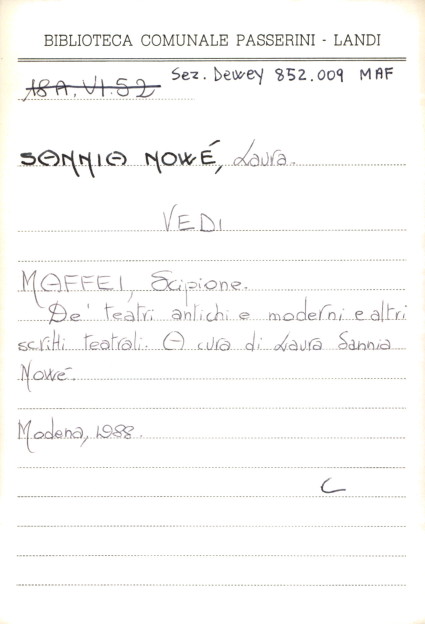 BIBLIOTECA COMUNALE PASSERINI - LANDI
18A.VI.52 Sez. Dewey 852.009 MAF
SANNIA NOWÉ, Laura.
VEDI
MAFFEI, Scipione.
De' teatri antichi e moderni e altri
scritti teatrali. A cura di Laura Sannia
Nowé.
Modena, 1988.
C